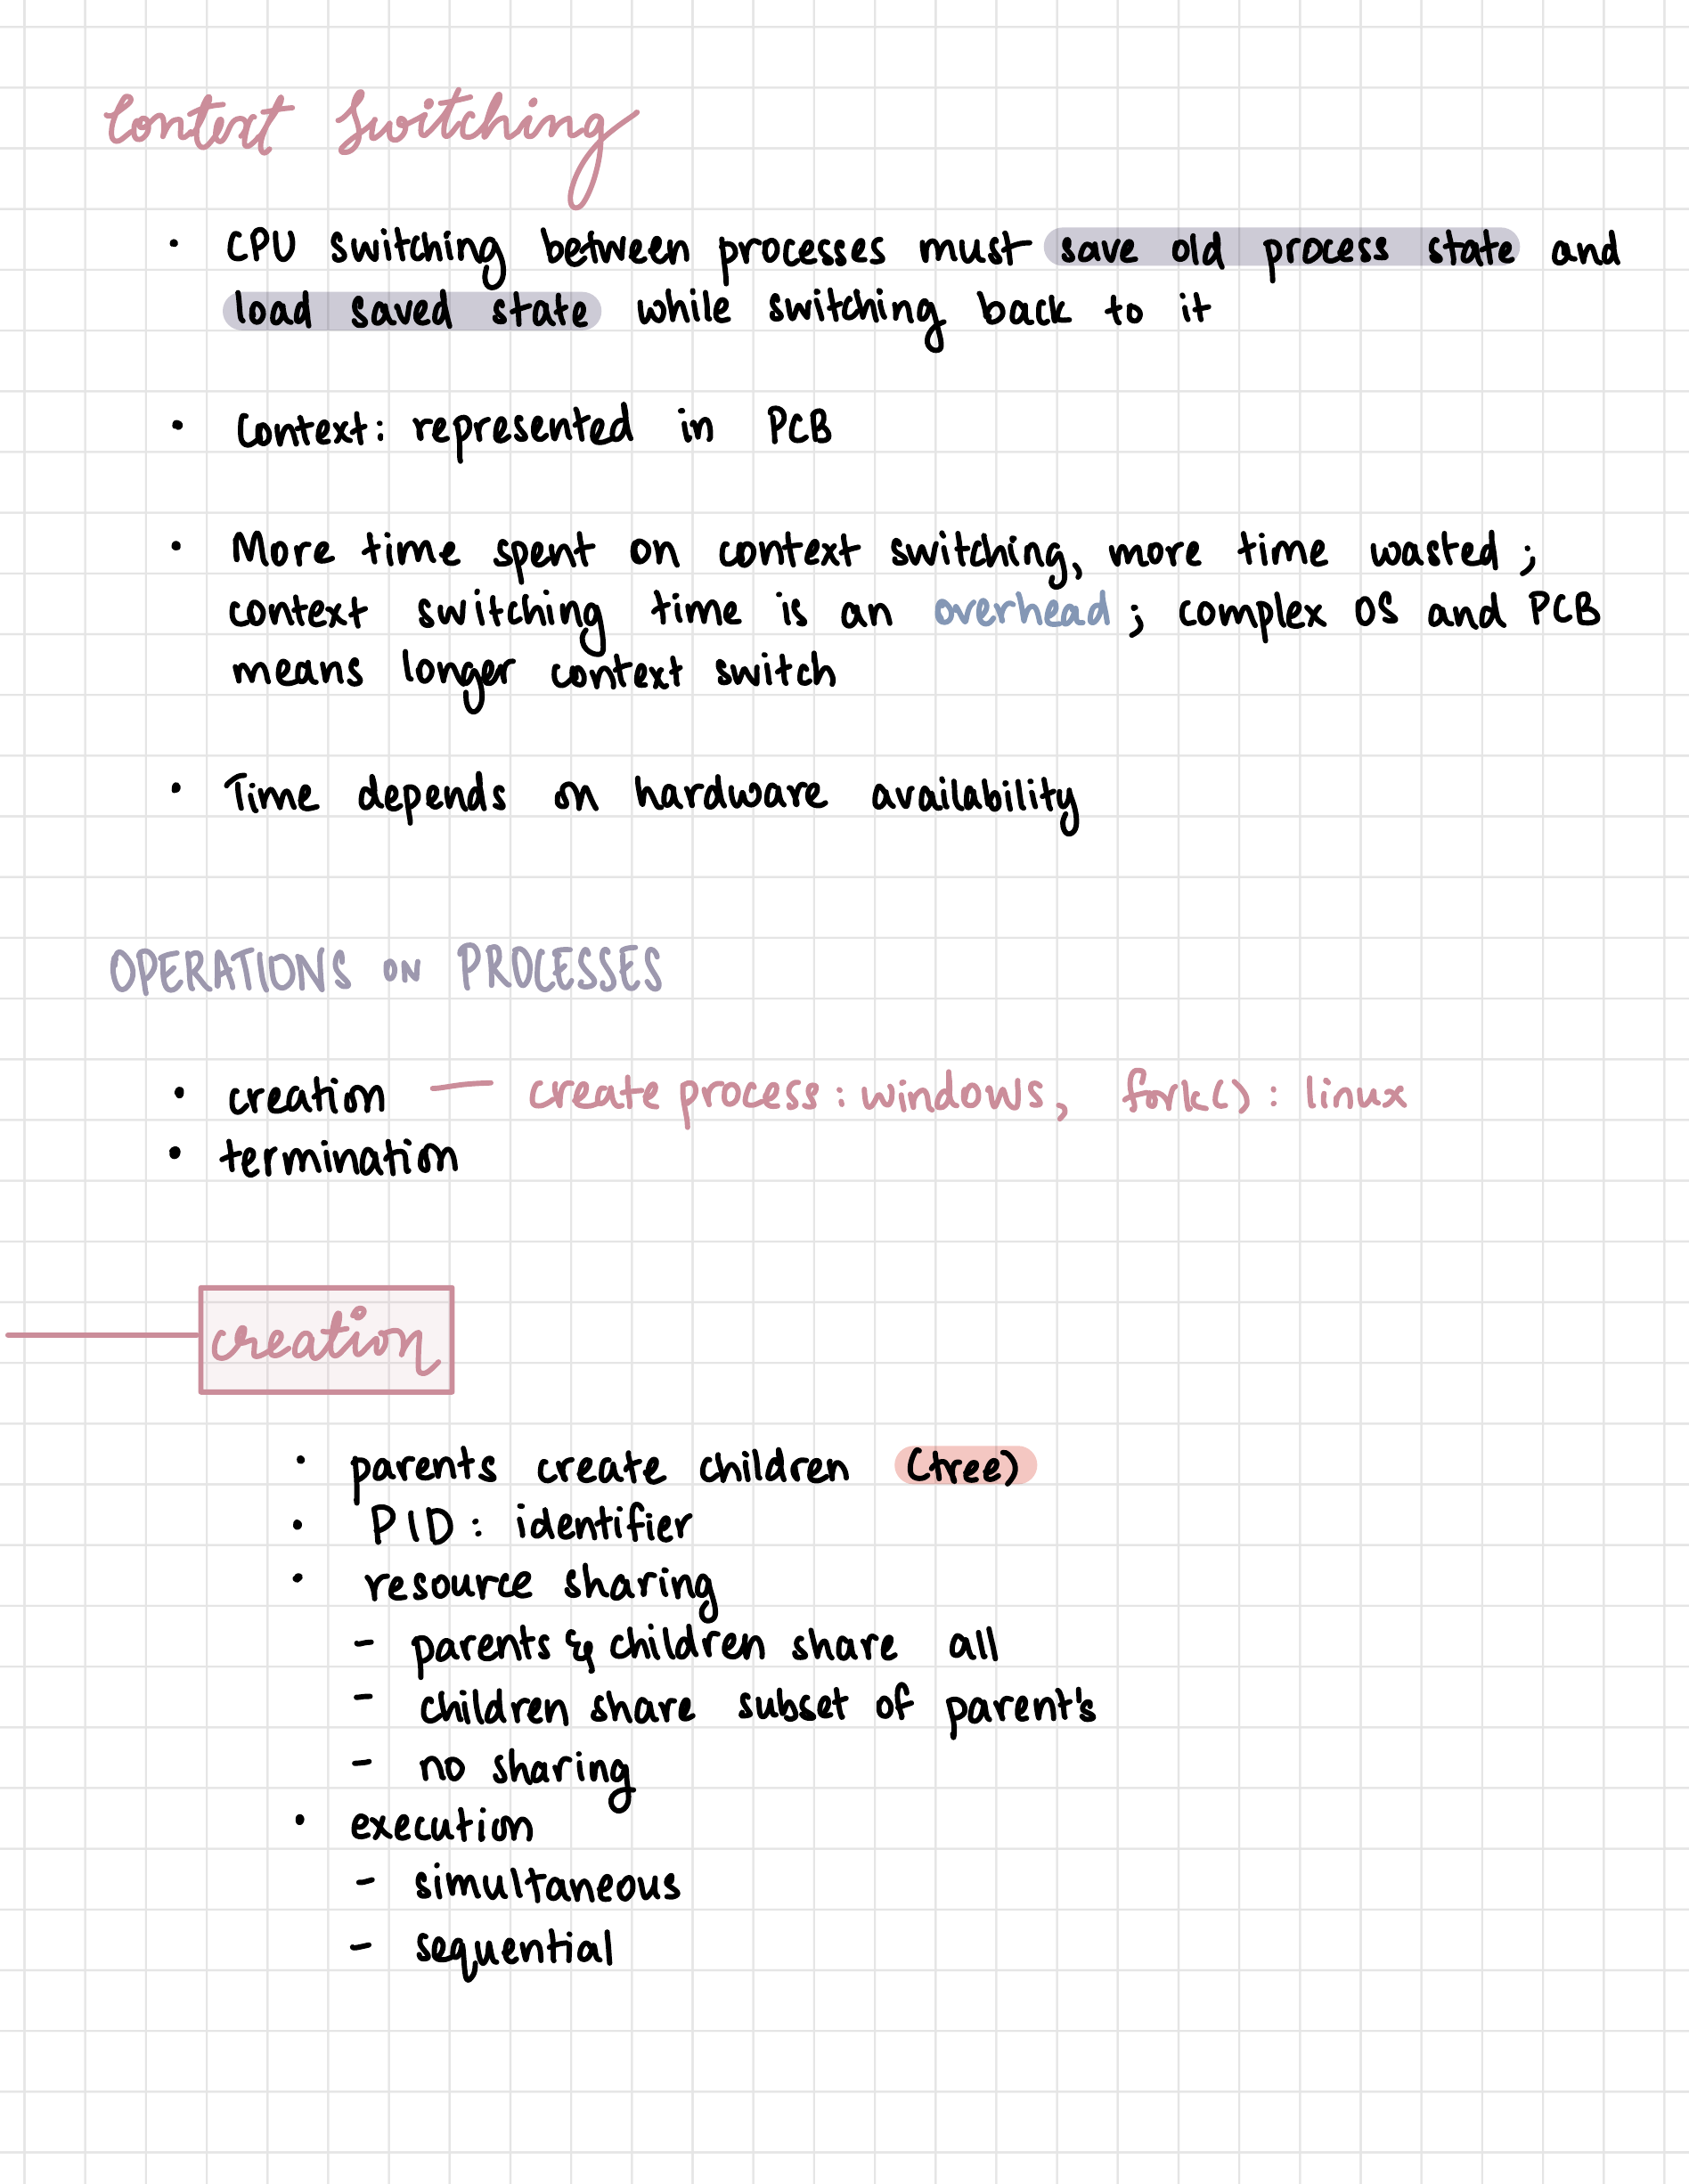 Context Switching
• CPU switching between processes must save old process state and
load saved state while switching back to it
• Context: represented in PCB
• More time spent on context switching, more time wasted;
context switching time is an overhead; complex OS and PCB
means longer context switch
• Time depends on hardware availability
OPERATIONS ON PROCESSES
• creation — create process: windows, fork(): linux
• termination
creation
• parents create children (tree)
• PID: identifier
• resource sharing
- parents & children share all
- children share subset of parent's
- no sharing
• execution
- simultaneous
- sequential